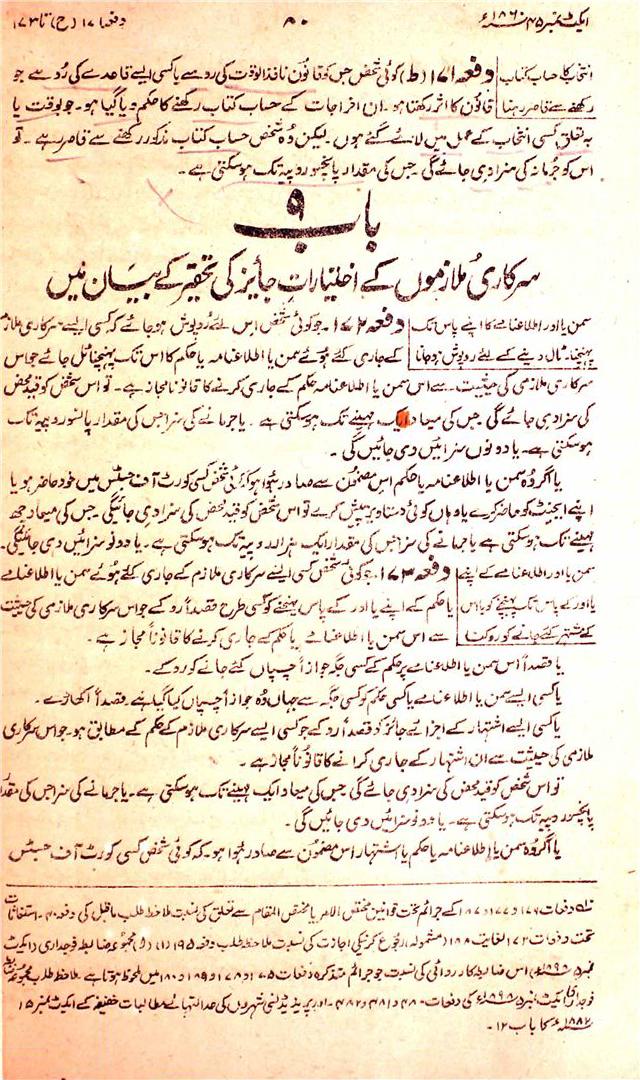 ایکٹ نمبر ۴۵ سنہ ۱۸۶۰ء
۸۰
دفعہ ۱۷۱ (ح) تا ۱۷۳
انتخاب کا حساب کتاب رکھنے سے قاصر رہنا
دفعہ ۱۷۱ (ط) کوئی شخص جس کو قانون نافذ الوقت کی رو سے یا کسی ایسے قاعدے کی رُو سے جو
قانون کا اثر رکھتا ہو۔ ان اخراجات کے حساب کتاب رکھنے کا حکم دیا گیا ہو۔ جو بوقت یا
بہ تعلق کسی انتخاب کے عمل میں لائے گئے ہوں۔ لیکن وُہ شخص حساب کتاب مذکور رکھنے سے قاصر رہے۔ تو
اس کو جُرمانہ کی سزا دی جائے گی۔ جس کی مقدار پانچسو روپیہ تک ہو سکتی ہے۔
باب ۹
سرکاری مُلازموں کے اختیاراتِ جائز کی تحقیر کے بیَان میں
سمن یا اور اطلاعنامے کا اپنے پاس تک پہنچنا ٹال دینے کے لئے رُوپوش ہو جانا
دفعہ ۱۷۲۔ جو کوئی شخص اس لئے رُوپوش ہو جائے کہ کسی ایسے سرکاری ملازم
کے جاری کئے ہُوئے سمن یا اطلاعنامہ یا حکم کا اس تک پہنچنا ٹل جائے جو اس
سرکاری ملازمی کی حیثیت سے اس سمن یا اطلاعنامہ حکم کے جاری کرنے کا قانوناً مجاز ہے۔ تو اس شخص کو قید محض
کی سزا دی جائے گی جس کی میعاد ایک مہینے تک ہو سکتی ہے۔ یا جرمانے کی سزا جس کی مقدار پانسو روپیہ تک
ہو سکتی ہے۔ یا دونوں سزائیں دی جائیں گی۔
یا اگر وُہ سمن یا اطلاعنامہ یا حکم اس مضمون سے صادر ہُوا ہو کہ کوئی شخص کسی کورٹ آف جسٹس میں خود حاضر ہو یا
اپنے ایجنٹ کو حاضر کرے یا وہاں کوئی دستاویز پیش کرے تو اس شخص کو قید محض کی سزا دی جائیگی۔ جس کی میعاد چھ
مہینے تک ہو سکتی ہے یا جرمانے کی سزا جس کی مقدار ایک ہزار روپیہ تک ہو سکتی ہے۔ یا دونو سزائیں دی جائینگی۔
سمن یا اور اطلاعنامے کے اپنے یا اور کے پاس تک پہنچنے کو یا اس کے مشتہر کئے جانے کو روکنا
دفعہ ۱۷۳۔ جو کوئی شخص کسی ایسے سرکاری ملازم کے جاری کئے ہُوئے سمن یا اطلاعنامے
یا حکم کے اپنے یا اور کے پاس پہنچنے کو کسی طرح قصداً روکے جو اس سرکاری ملازمی کی حیثیت
سے اس سمن یا اطلاعنامے یا حکم کے جاری کرنے کا قانوناً مجاز ہے۔
یا قصداً اس سمن یا اطلاعنامے یا حکم کے کسی جگہ جوازاً چسپاں کئے جانے کو روکے۔
یا کسی ایسے سمن یا اطلاعنامے یا کسی حکم کو کسی جگہ سے جہاں وُہ جوازاً چسپاں کیا گیا ہے۔ قصداً اکھاڑے۔
یا کسی ایسے اشتہار کے اجرائے جائز کو قصداً روکے جو کسی ایسے سرکاری ملازم کے حکم کے مطابق ہو۔ جو اس سرکاری
ملازمی کی حیثیت سے ان اشتہار کے جاری کرانے کا قانُوناً مجاز ہے۔
تو اس شخص کو قید محض کی سزا دی جائے گی جس کی میعاد ایک مہینے تک ہو سکتی ہے۔ یا جرمانے کی سزا جس کی مقدار
پانچسو روپیہ تک ہو سکتی ہے۔ یا دونو سزائیں دی جائیں گی۔
یا اگر وُہ سمن یا اطلاعنامہ یا حکم یا اشتہار اس مضمون سے صادر ہُوا ہو۔ کہ کوئی شخص کسی کورٹ آف جسٹس
دفعات ۱۷۶ و ۱۷۷ و ۱۸۷ کے جرائم تحت قوانین مختص الامر یا مختص المقام سے تعلق کی نسبت ملاحظہ طلب ماقبل کی دفعہ ۴۰۔ استغاثات
تحت دفعات ۱۷۲ لغایت ۱۸۸ (مشمولہ) رجوع کرنیکی اجازت کی نسبت ملاحظہ طلب دفعہ ۱۹۵ (۱) مجموعہ ضابطہ فوجداری (ایکٹ
نمبر ۵ ۱۸۹۸ء) اس ضابطہ کارروائی کی نسبت جو جرائم متذکرہ دفعات ۱۷۵ و ۱۷۸ و ۱۷۹ و ۱۸۰ میں ملحوظ ہوتا ہے۔ ملاحظہ طلب مجموعہ ضابطہ
فوجداری ایکٹ نمبر ۵ ۱۸۹۸ء کی دفعات ۴۸۰ و ۴۸۱ و ۴۸۲۔ اور پریذیڈنسی شہروں کی عدالتہائے مطالبات خفیفہ کے ایکٹ نمبر ۱۵
۱۸۸۲ء کا باب ۱۲۔